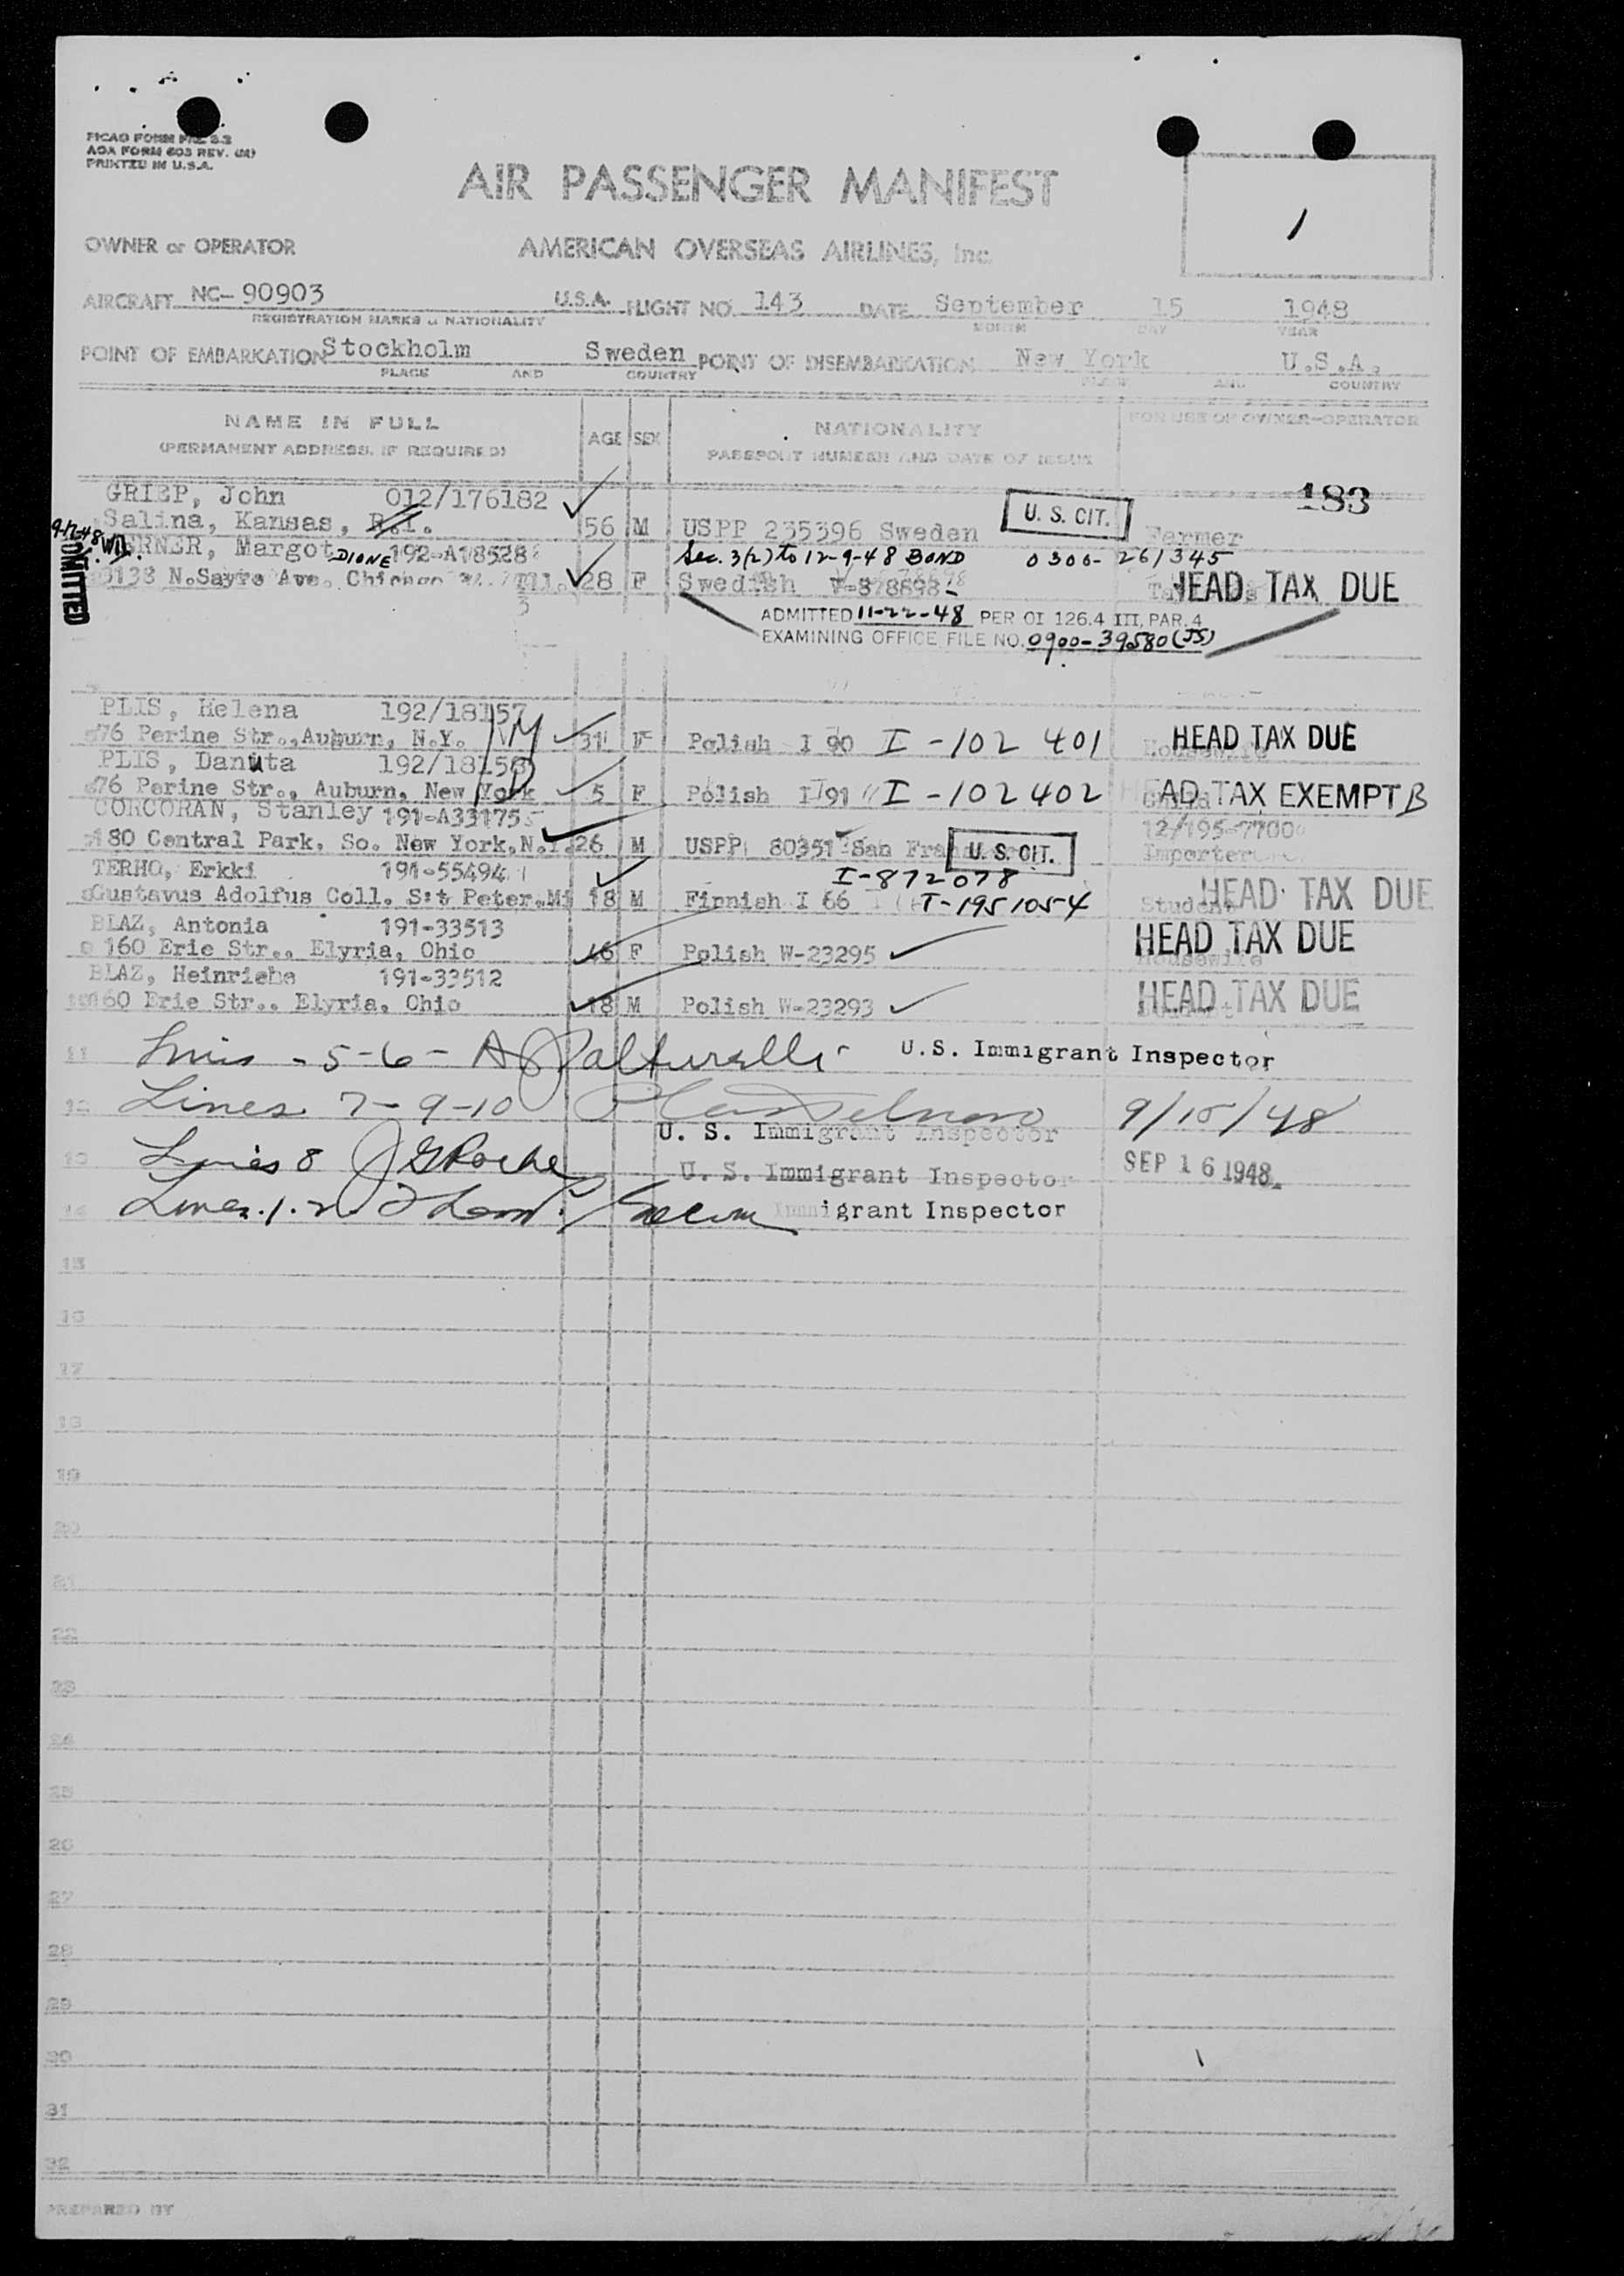 AOA FORM 603 REV. (M)
PRINTED IN U.S.A.
1
AIR PASSENGER MANIFEST
OWNER or OPERATOR AMERICAN OVERSEAS AIRLINES, Inc.
AIRCRAFT NC-90903 U.S.A. FLIGHT NO. 143 DATE September 15 1948
REGISTRATION MARKS & NATIONALITY MONTH DAY YEAR
POINT OF EMBARKATION Stockholm Sweden POINT OF DISEMBARKATION New York U.S.A.
PLACE AND COUNTRY PLACE AND COUNTRY
NAME IN FULL AGE SEX NATIONALITY FOR USE OF OWNER-OPERATOR
(PERMANENT ADDRESS, IF REQUIRED) PASSPORT NUMBER AND DATE OF ISSUE
183
GRIEP, John 012/176182
Salina, Kansas, 56 M USPP 235396 Sweden U. S. CIT. Farmer
9-17-48
ADMITTED
ERNER, Margot DIONE 192-A18528 Sec. 3(2) to 12-9-48 BOND 0300-261345
N. Sayre Ave. Chicago Ill. 28 F Swedish HEAD TAX DUE
3
ADMITTED 11-22-48 PER OI 126.4 III, PAR. 4
EXAMINING OFFICE FILE NO. 0900-39580 (JS)
PLIS, Helena 192/18157
76 Perine Str., Auburn, N.Y. 31 F Polish I 90 I-102 401 Housewife HEAD TAX DUE
PLIS, Danuta 192/18158
76 Perine Str., Auburn, New York 5 F Polish I 91 I-102402 Child HEAD TAX EXEMPT B
CORCORAN, Stanley 191-A33175 12/195-7700
180 Central Park, So. New York, N.Y. 26 M USPP 80351 San U. S. CIT. Importer
TERHO, Erkki 191-55494 I-872078
Gustavus Adolfus Coll. S:t Peter, Mi 18 M Finnish I 66 T-1951054 Student HEAD TAX DUE
BLAZ, Antonia 191-33513
160 Erie Str., Elyria, Ohio 46 F Polish W-23295 Housewife HEAD TAX DUE
BLAZ, Heinriche 191-33512
160 Erie Str., Elyria, Ohio 18 M Polish W-23293 HEAD TAX DUE
11 Lines - 5-6- U.S. Immigrant Inspector
12 Lines 7-9-10 9/15/48
U. S. Immigrant Inspector
13 Lines 8 J G Roche U. S. Immigrant Inspector SEP 16 1948
14 Lines 1.2 Immigrant Inspector
15
16
17
18
19
20
21
22
23
24
25
26
27
28
29
30
31
32
PREPARED BY